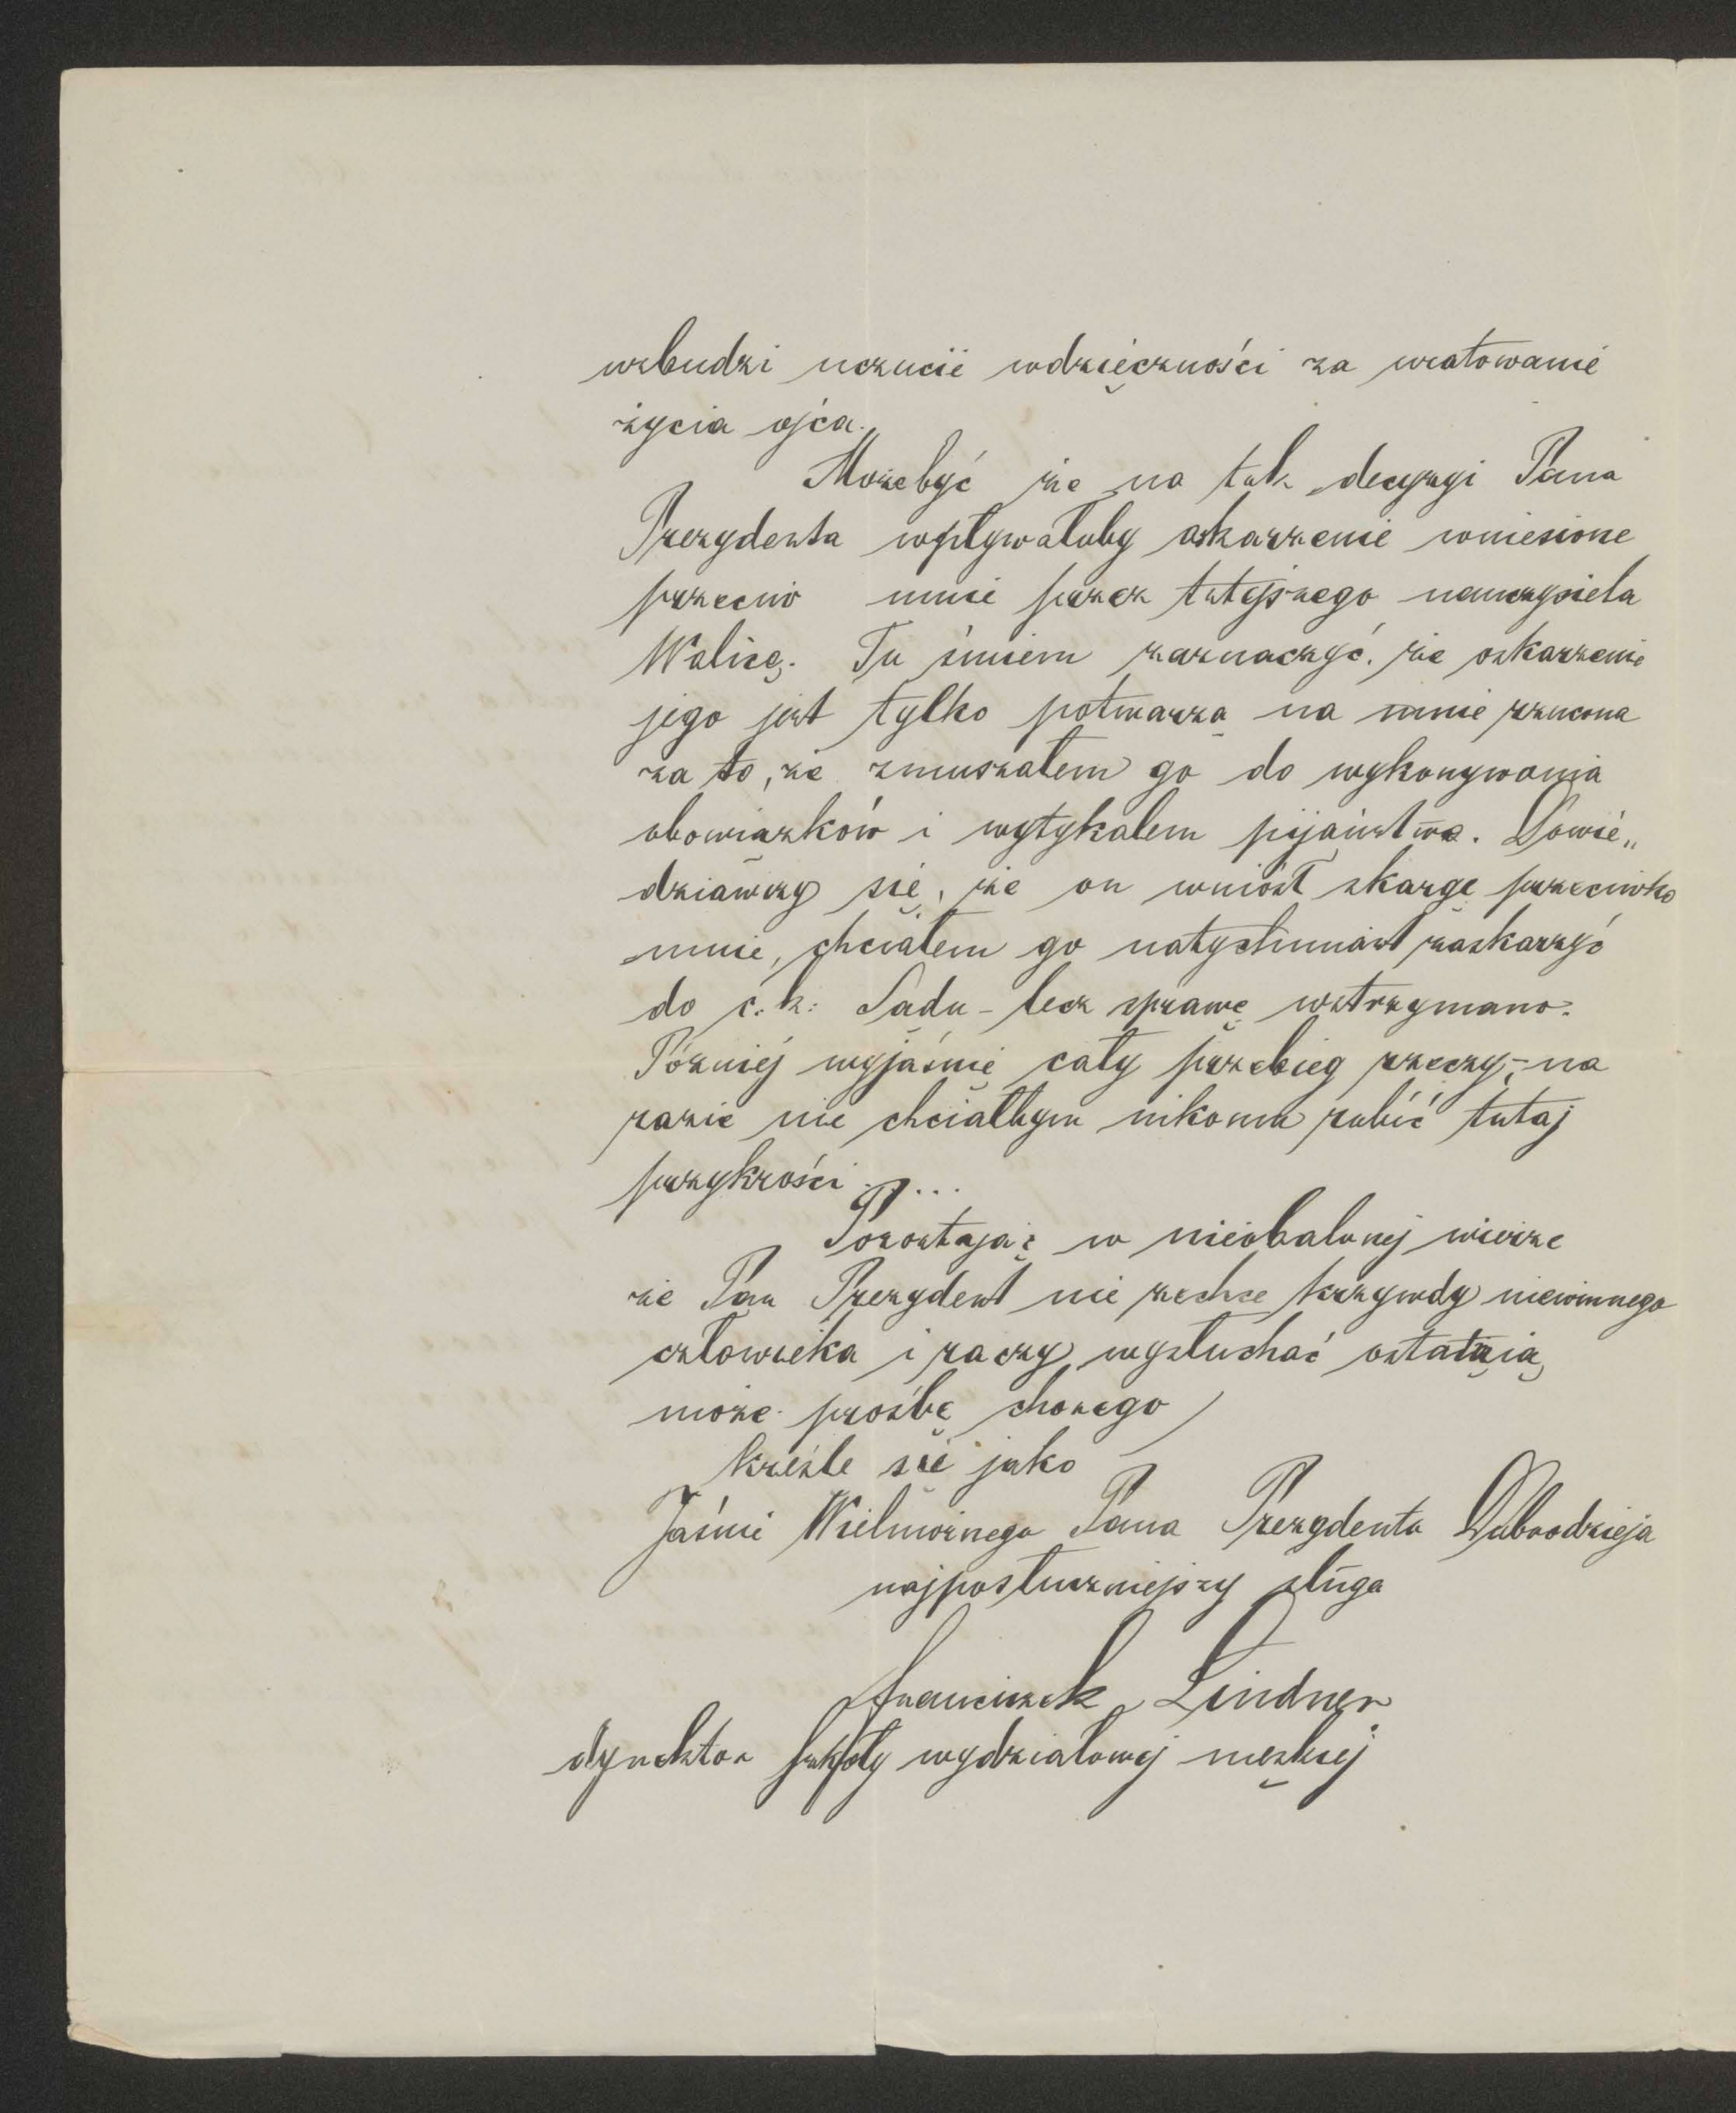 wzbudzi uczucie wdzięczności za uratowanie
życia ojca.
Możebyć że na tak decyzyi Pana
Prezydenta wpływałoby oskarżenie wniesione
przeciw mnie przez tutejszego nauczyciela
Walicę. Tu śmiem zaznaczyć, że oskarżenie
jego jest tylko potwarzą na mnie rzuconą
za to, że zmuszałem go do wykonywania
obowiązków i wytykałem pijaństwo. Dowie„
dziawszy się, że on wniósł skargę przeciwko
mnie, chciałem go natychmiast zaskarżyć
do c. k. Sądu – lecz sprawę wstrzymano.
Później wyjaśnię cały przebieg rzeczy, – na
razie nie chciałbym nikomu robić tutaj
przykrości ....
Pozostając w nieobalonej wierze
że Pan Prezydent nie zechce krzywdy niewinnego
człowieka i raczy wysłuchać ostatnią
może prośbę chorego
kreślę się jako
Jaśnie Wielmożnego Pana Prezydenta Dobrodzieja
najposłuszniejszy sługa
Franciszek Lindner
dyrektor szkoły wydziałowej męskiej